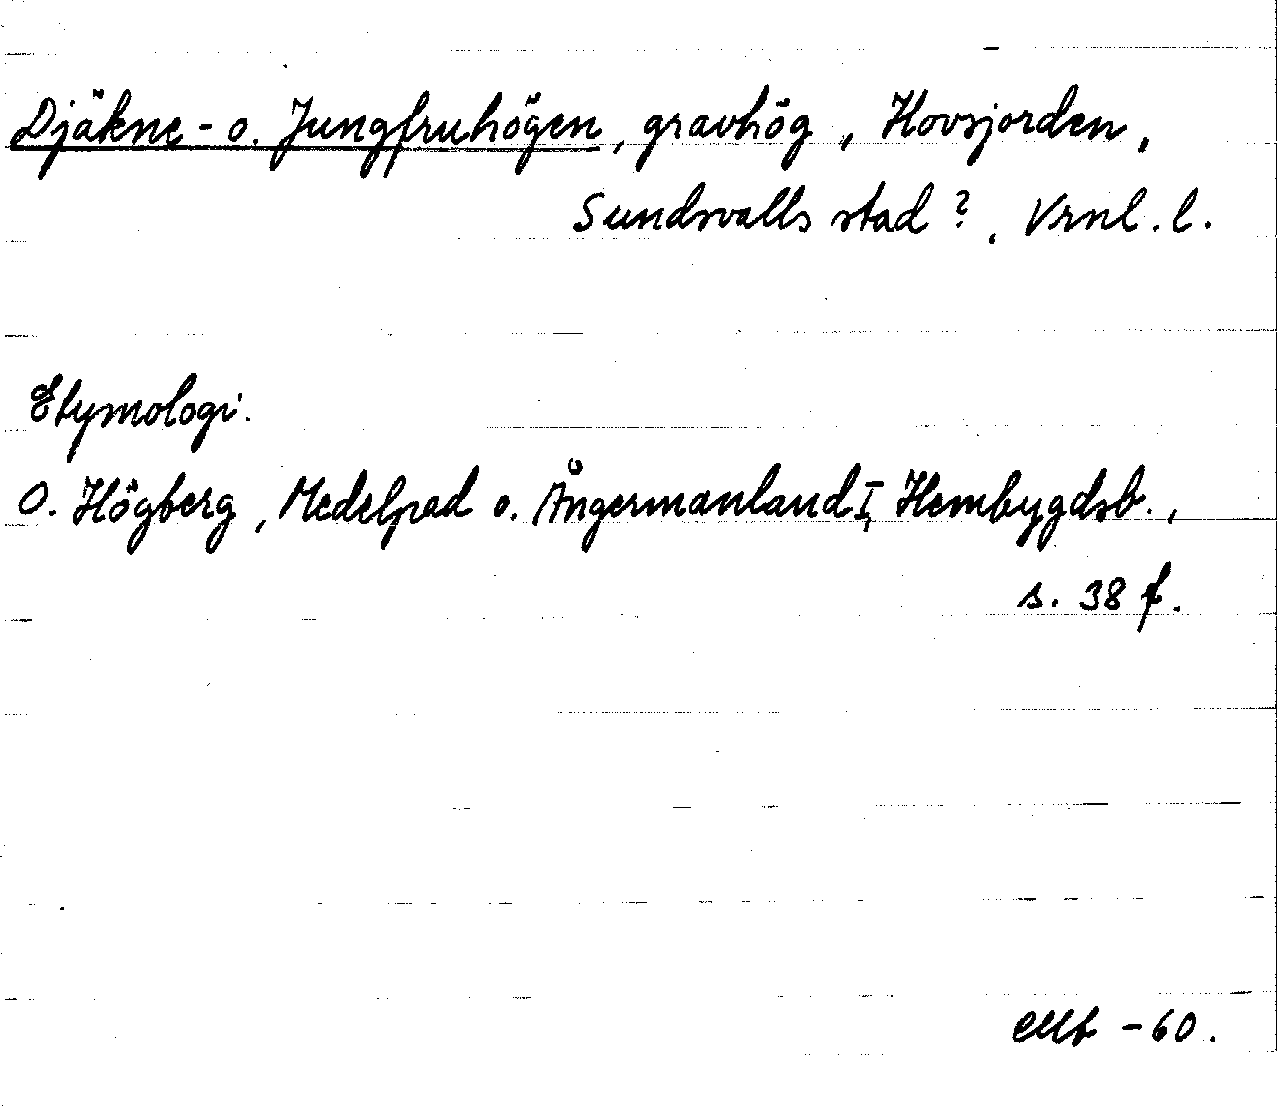 Djäkne- o. Jungfruhögen, gravhög, Hovsjorden,
Sundsvalls stad?, Vrnl. l.
Etymologi.
O. Högberg, Medelpad o. Ångermanland I, Hembygdsb.,
s. 38 f.
-60.